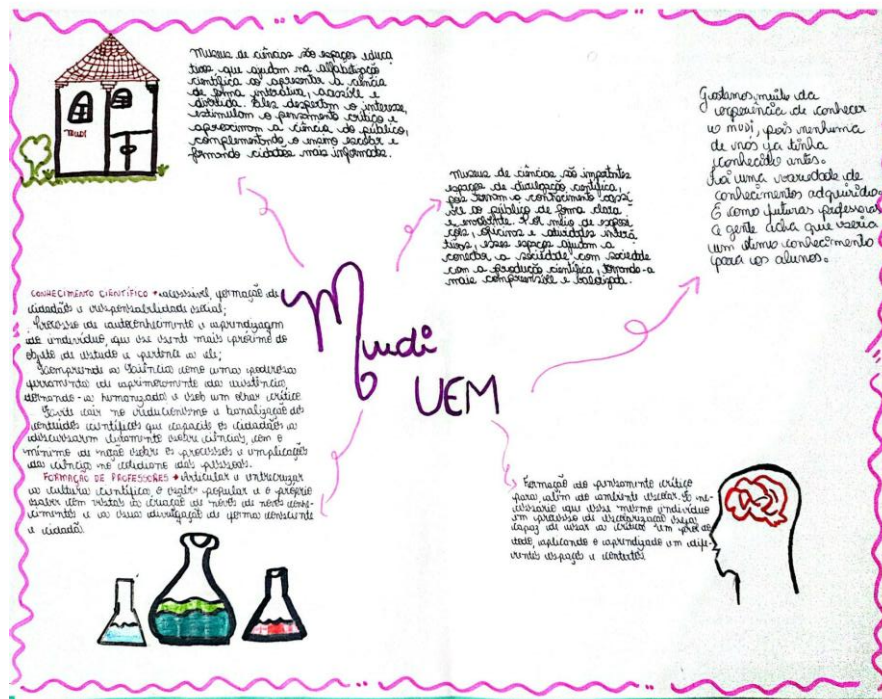 Museus de ciências são espaços educa
tivos que ajudam na alfabetização
científica ao apresentar a ciência
de forma interativa, acessível e
divertida. Eles despertam o interesse,
estimulam o pensamento crítico e
aproximam a ciência do público,
complementando o ensino escolar e
formando cidadãos mais informados.
MUDI
Museus de ciências são importantes
espaços de divulgação científica,
pois tornam o conhecimento acessí
vel ao público de forma clara
e envolvente. Por meio de exposi
ções, oficinas e atividades intera
tivas, esses espaços ajudam a
conectar a sociedade com sociedade
com a produção científica, tornando-a
mais compreensível e valorizada.
Gostamos muito da
experiência de conhecer
o mudi, pois nenhuma
de nós ja tinha
conhecido antes.
Foi uma variedade de
conhecimentos adquiridos
E como futuras professoras
a gente acha que seria
um ótimo conhecimento
para os alunos.
Mudi
UEM
CONHECIMENTO CIENTÍFICO → acessível, formação de
cidadãos e responsabilidade social;
Processo de autoconhecimento e aprendizagem
do indivíduo, que se sente mais próximo do
objeto de estudo e pertence a ele;
Compreende a Ciência como uma poderosa
ferramenta de aprimoramento da existência,
tornando-a humanizada e sob um olhar crítico
Evita cair no reducionismo e banalização dos
conteúdos científicos que capacita os cidadãos a
discursarem livremente sobre ciências, com o
mínimo de noção sobre os processos e implicações
das ciências no cotidiano das pessoas.
FORMAÇÃO DE PROFESSORES → Articular e entrecruzar
a cultura científica, o saber popular e o próprio
saber com vistas à criação de novos de novos conhe-
cimentos e a sua divulgação de forma consciente
e cidadã.
Formação do pensamento crítico
para, além do ambiente escolar. É ne-
cessário que esse mesmo indivíduo
em processo de escolarização seja
capaz de usar a crítica em
aplicando o aprendizado em dife-
rentes espaços e contextos.